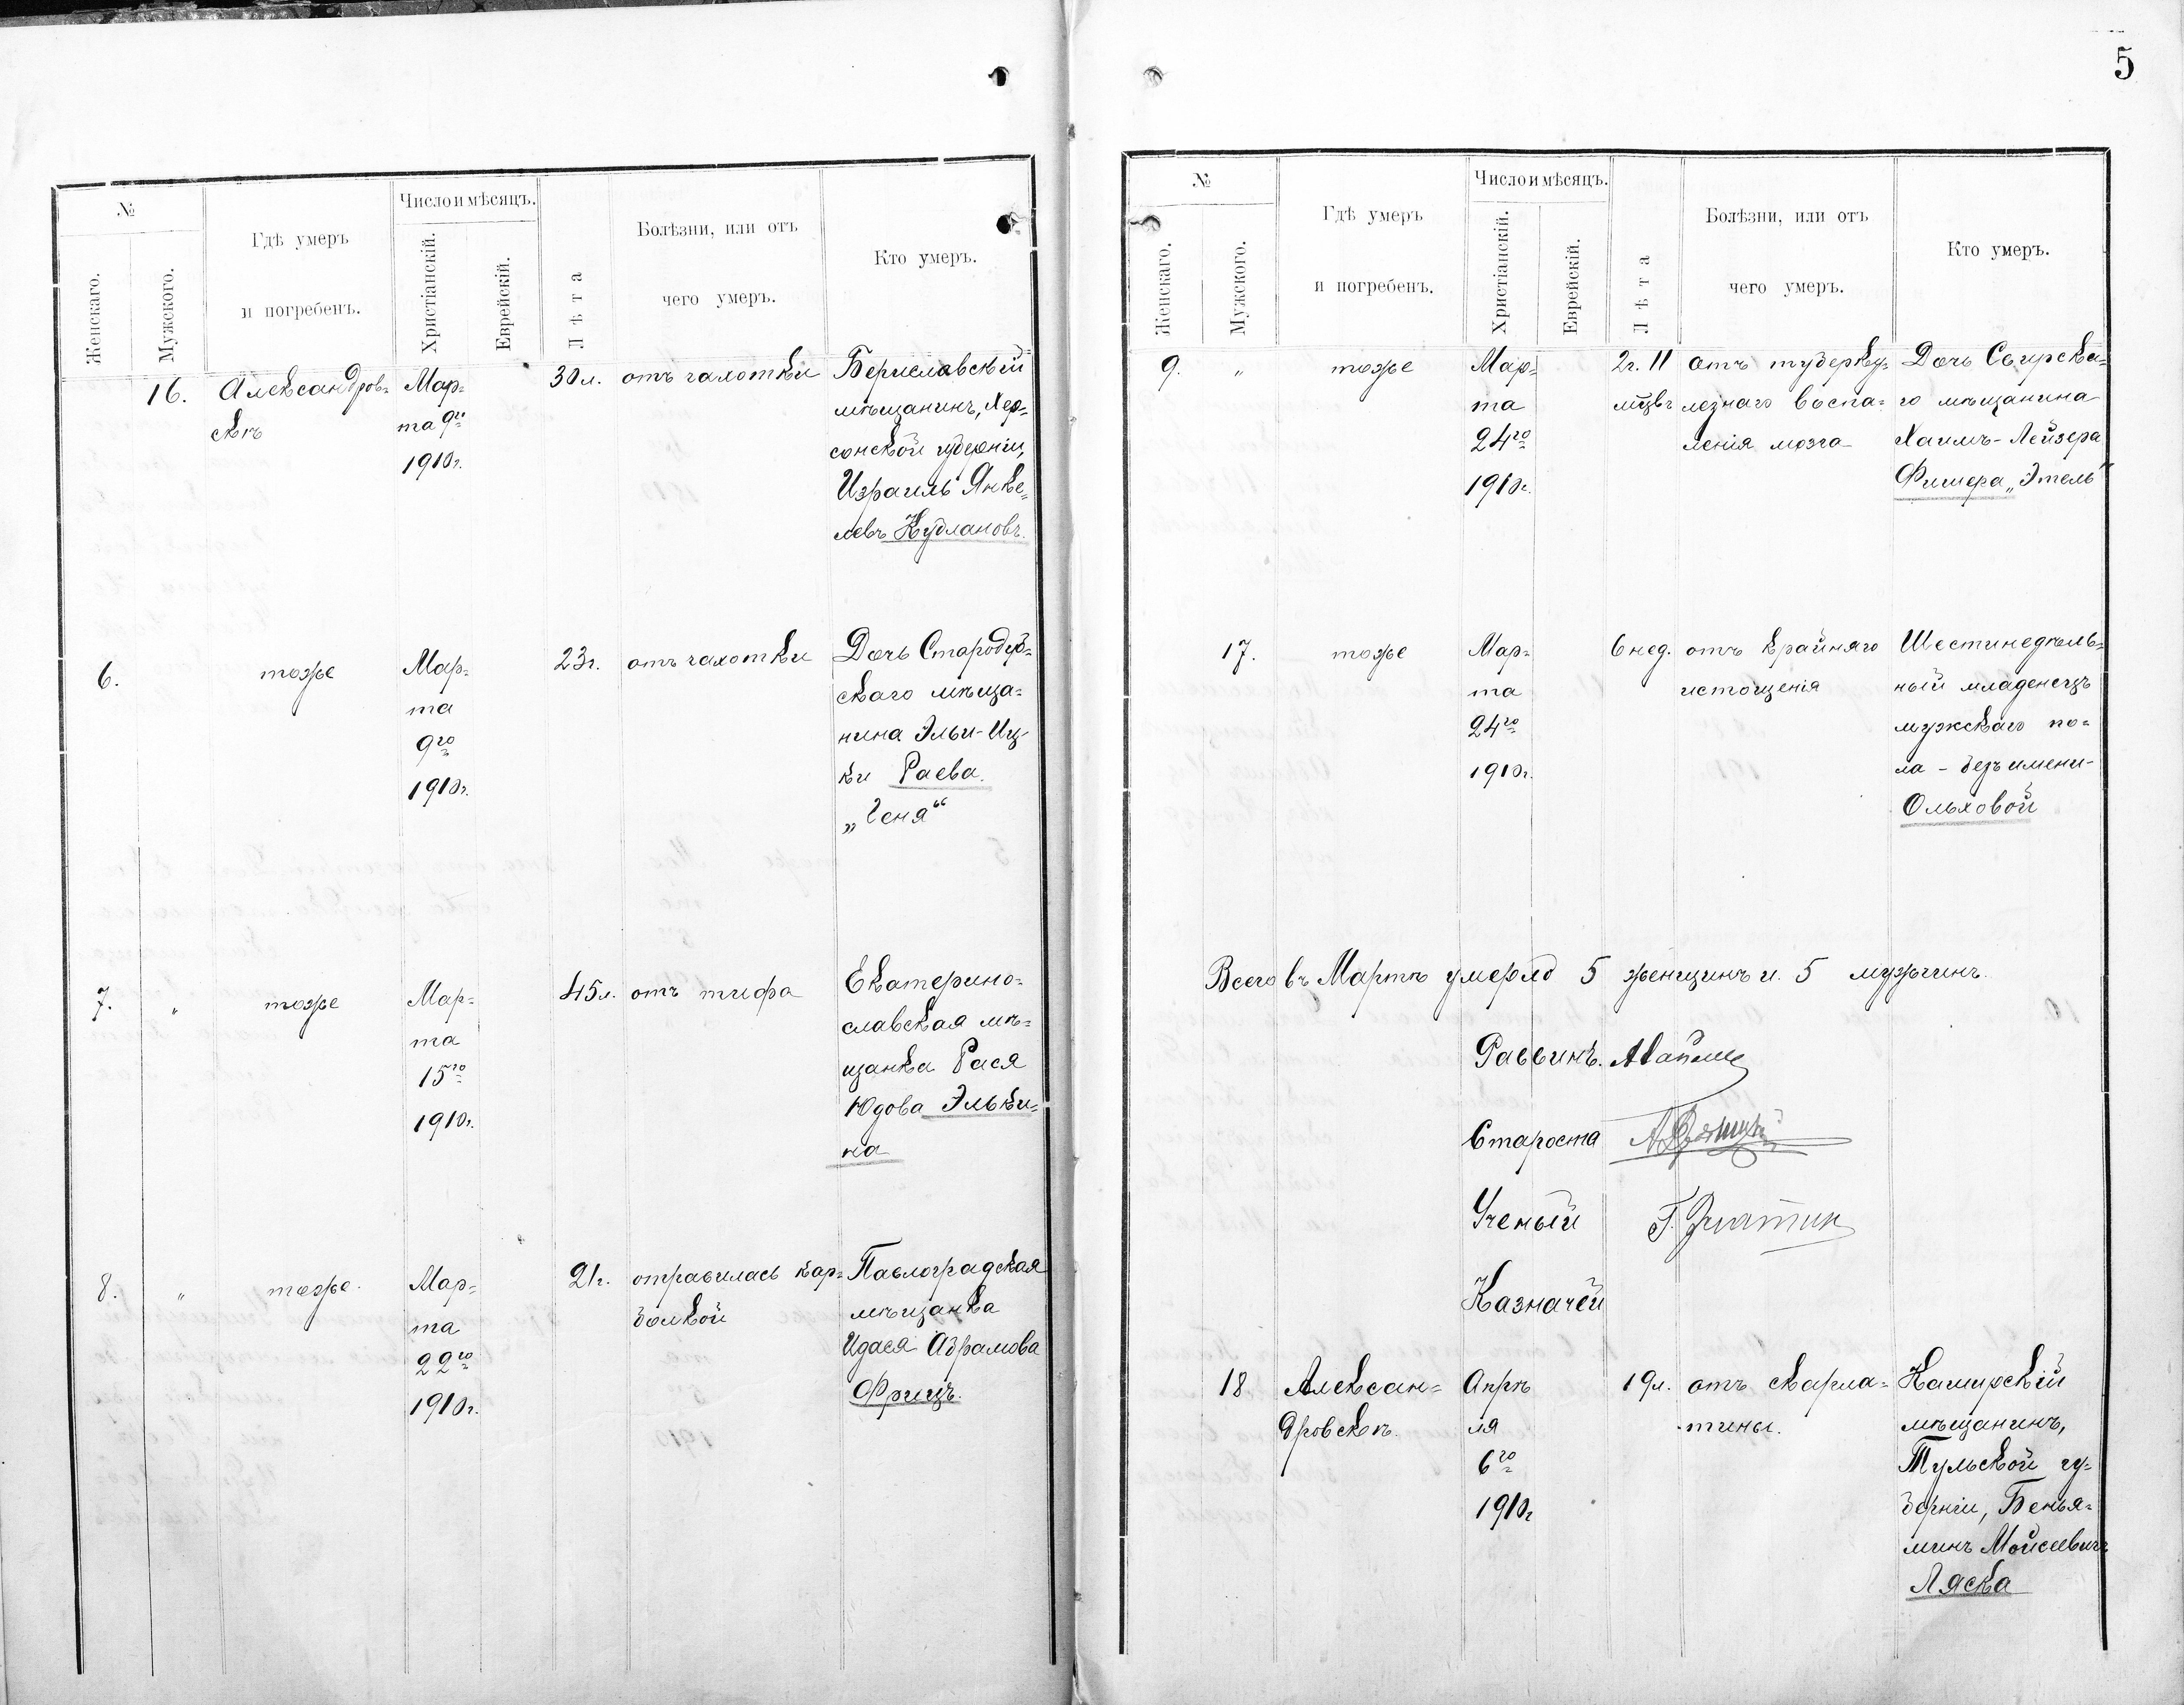 5
№
Женскаго.
Мужского.
Гдѣ умеръ
и погребенъ.
Число и мѣсяцъ.
Христіанскій.
Еврейскій.
Лѣта
Болѣзни, или отъ
чего умеръ.
Кто умеръ.
16.
Александров=
скѣ
Мар=
та 9го
1910г.
30л.
отъ чахотки
Бериславскій
мѣщанинъ, Хер=
сонской губерніи,
Израиль Янке=
левъ Кудлановъ.
6.
тоже
Мар=
та
9го
1910г.
23г.
отъ чахотки
Дочь Стародуб=
скаго мѣща=
нина Эльи-Иц-
ки Раева.
„Геня“
7.
"
тоже
Мар=
та
15го
1910г.
45л.
отъ тифа
Екатерино=
славская мѣ=
щанка Рася
Юдова Эльки=
на
8.
"
тоже.
Мар=
та
22го
1910г.
21г.
отравилась кар=
болкой
Павлоградская
мѣщанка
Идася Абрамова
Фрицъ.
№
Женскаго.
Мужского.
Гдѣ умеръ
и погребенъ.
Число и мѣсяцъ.
Христіанскій.
Еврейскій.
Лѣта
Болѣзни, или отъ
чего умеръ.
Кто умеръ.
9.
"
тоже
Мар=
та
24го
1910г.
2г. 11
мцвъ
отъ туберку=
лезнаго воспа=
ленія мозга
Дочь Свирска=
го мѣщанина
Хаимъ-Лейзера
Фишера „Этель“
17.
тоже
Мар=
та
24го
1910г.
6 нед.
отъ крайняго
истощенія
Шестинедѣль=
ный младенецъ
мужскаго по=
ла - безъ имени-
Ольховой
Всего въ Мартѣ умерло 5 женщинъ и 5 мужчинъ.
Раввинъ.
Староста
Ученый
Казначей
18
Алексан=
дровскѣ.
Апрѣ
ля
6го
1910г
19л.
отъ скарла=
тины.
Каширскій
мѣщанинъ,
Тульской гу=
берніи, Бенья=
минъ Мойсеевичъ
Ляска